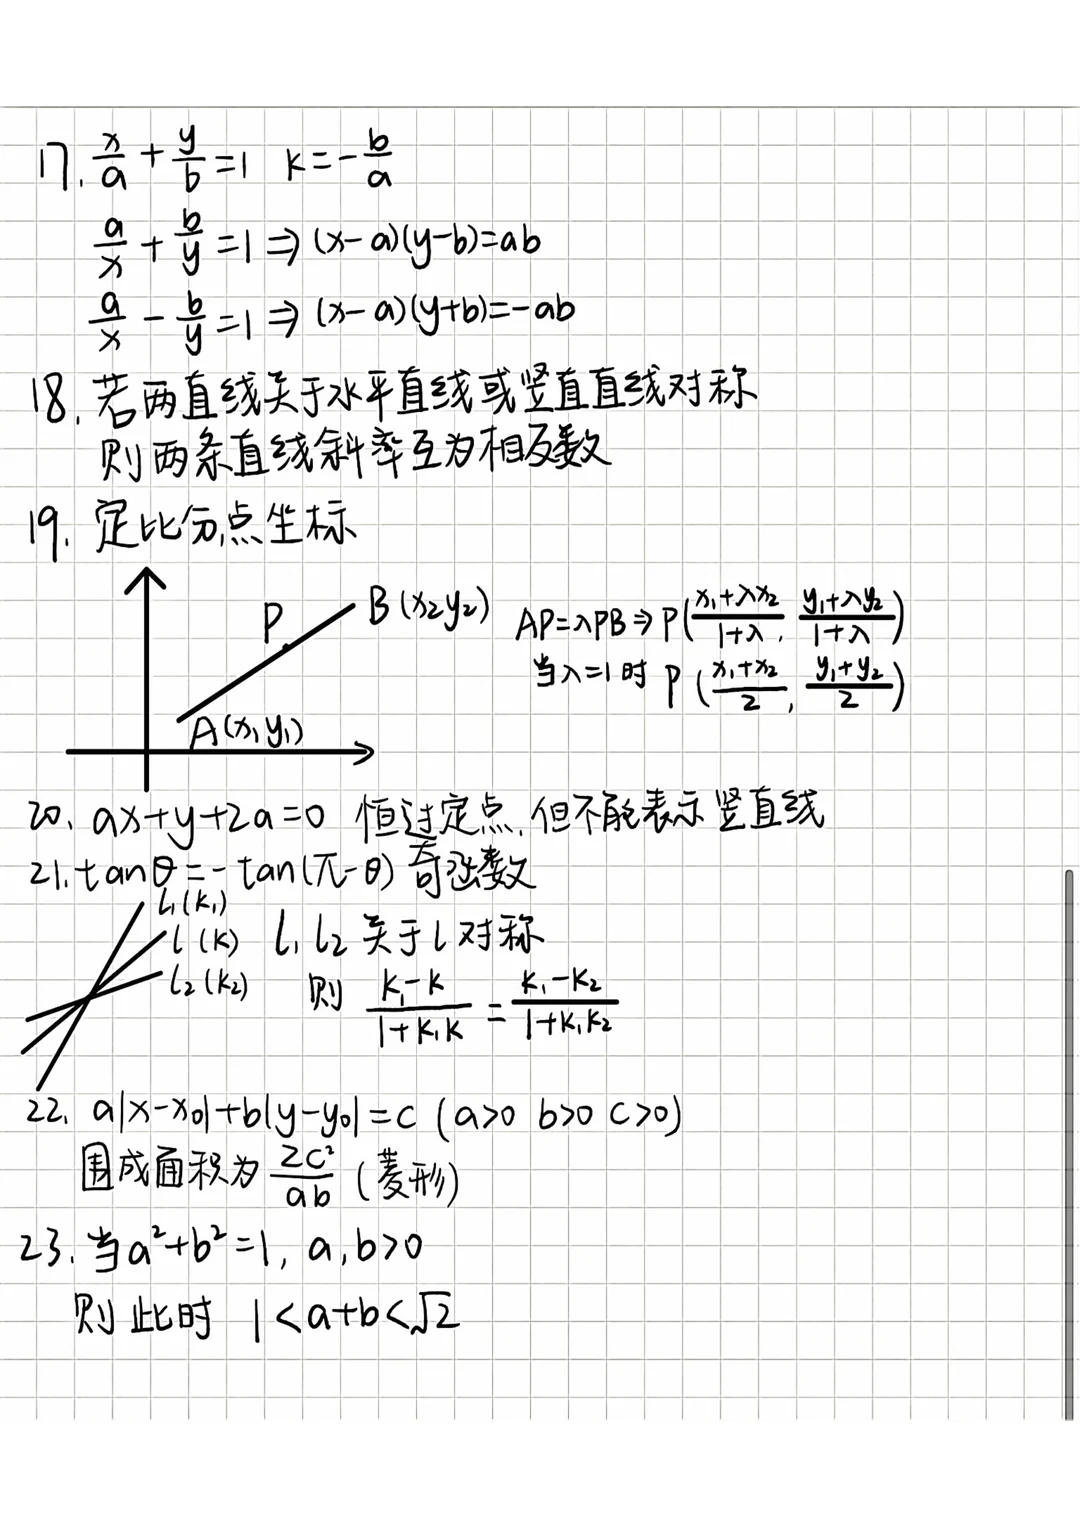 17. x/a + y/b =1 k=-b/a
a/x + b/y =1 ⇒ (x-a)(y-b)=ab
a/x - b/y =1 ⇒ (x-a)(y+b)=-ab
18. 若两直线关于水平直线或竖直直线对称
则两条直线斜率互为相反数
19. 定比分点坐标
P B(x₂y₂) AP=λPB ⇒ P((x₁+λx₂)/(1+λ), (y₁+λy₂)/(1+λ))
当λ=1时 P((x₁+x₂)/2, (y₁+y₂)/2)
A(x₁y₁)
20. ax+y+2a=0 恒过定点,但不能表示竖直线
21. tanθ=-tan(π-θ) 奇函数
l₁(k₁)
l(k) l₁ l₂ 关于l对称
l₂(k₂) 则 (k₁-k)/(1+k₁k) = (k₁-k₂)/(1+k₁k₂)
22. a|x-x₀|+b|y-y₀|=c (a>0 b>0 c>0)
围成面积为 2c²/ab (菱形)
23. 当a²+b²=1, a,b>0
则此时 1<a+b<√2